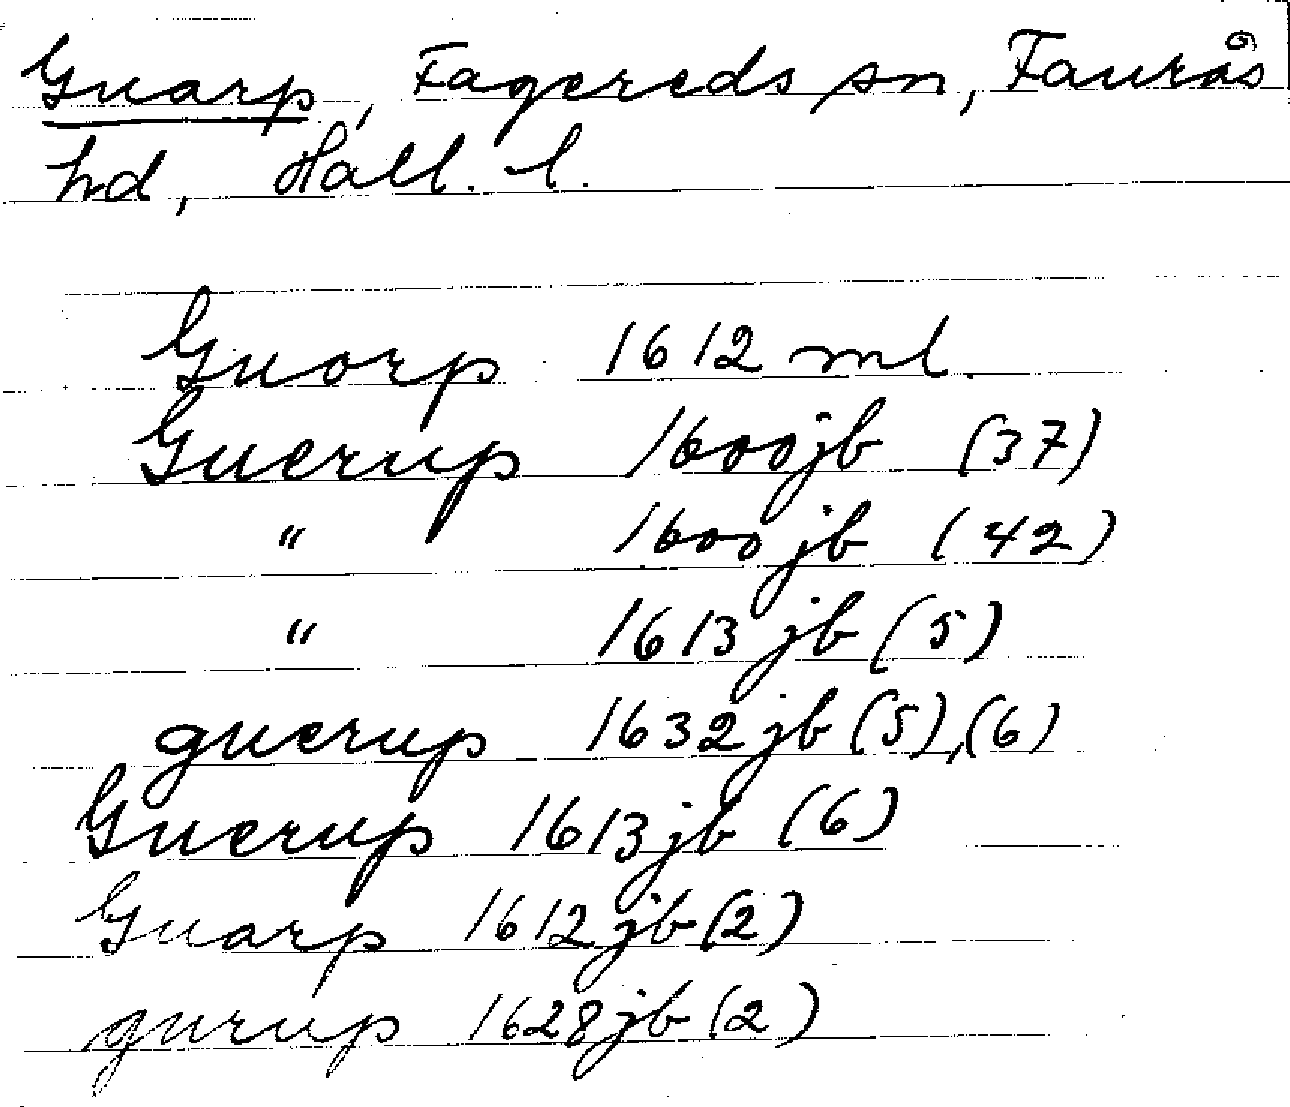 Guarp, Fagereds sn, Faurås
hd, Hall. l.
Guorp 1612 ml.
Guerup 1600 jb (37)
" 1600 jb (42)
" 1613 jb (5)
guerup 1632 jb (5), (6)
Guerup 1613 jb (6)
Guarp 1612 jb (2)
gurup 1628 jb (2)